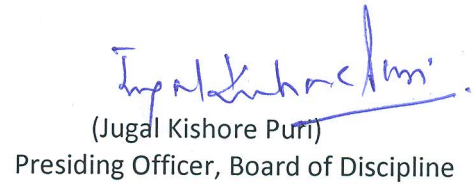 Jugal Kishore Puri
(Jugal Kishore Puri)
Presiding Officer, Board of Discipline